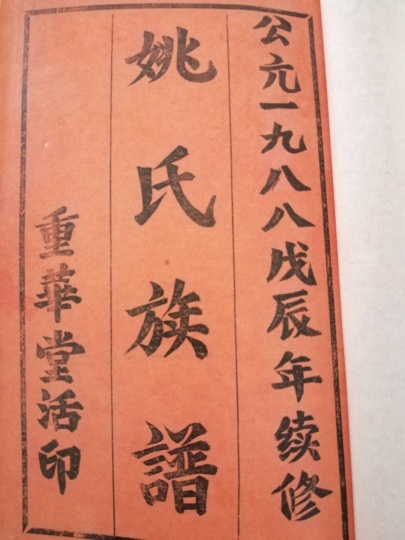 公元一九八八戊辰年续修
姚氏族譜
重華堂活印